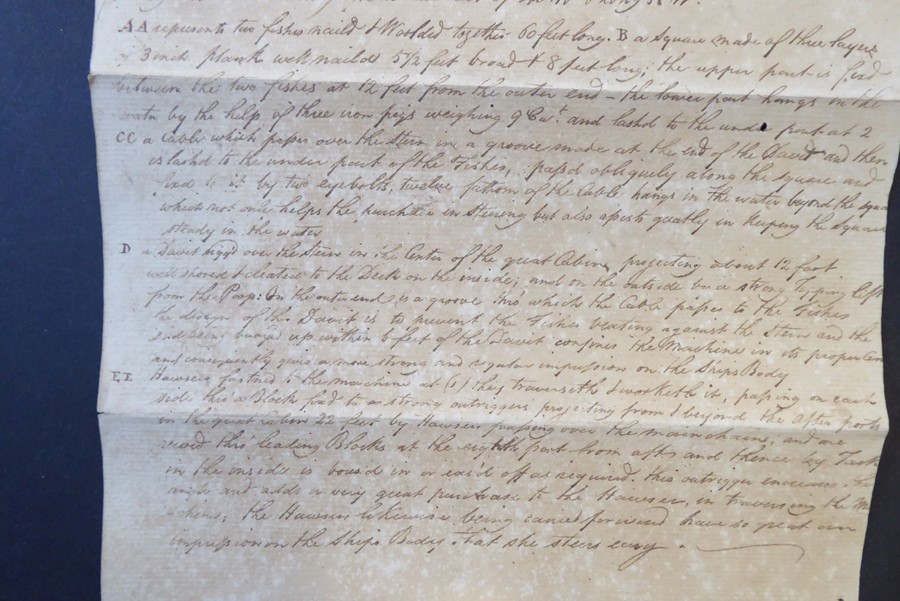 AA represents two fishes naild & Woolded together 60 feet long. B a Square made of three layers
of 3 inch plank well naild 5½ feet broad & 8 feet long; the upper part is fixd
between the two fishes at 12 feet from the outer end – the lower part hangs in the
water by the help of three iron pigs weighing 9 Cwt. and lashd to the under part at 2
CC a Cable which passes over the Stern in a groove made at the end of the Davit and then
is lashd to the under part of the Fishes, passd obliquely along the square and
fixd to it by two eyebolts, twelve fathom of the Cable hangs in the water beyond the square
which not only helps the purchase in Steering but also assists greatly in keeping the Square
steady in the water
D a Davit riggd over the Stern in the Center of the great Cabin, projecting about 12 foot
well shored & cleated to the Deck on the inside; and on the outside has a strong Topping lift
from the Poop: On the outer end is a groove thro which the Cable passes to the Fishes
the design of the Davit is to prevent the Fishes beating against the Stern and the
end being up within 6 feet of the Davit confines the Machine in its proper
and consequently gives a more strong and regular impression on the Ships Body
EE Hawsers fastned to the machine at (1) they traverseth & worketh it, passing on each
side thro a Block fixd to a strong outrigger projecting from & beyond the after ports
in the great Cabin 22 feet by Hawsers passing over the main chains, and are
reevd thro leading Blocks at the eighth port from aft and thence by Tackles
in the inside is bousd in or easd off as required. this outrigger increases the
angle and adds a very great purchase to the Hawser, in traversing the Ma
chine; the Hawsers likewise being carried forward have so great an
impression on the Ships Body that she steers easy.